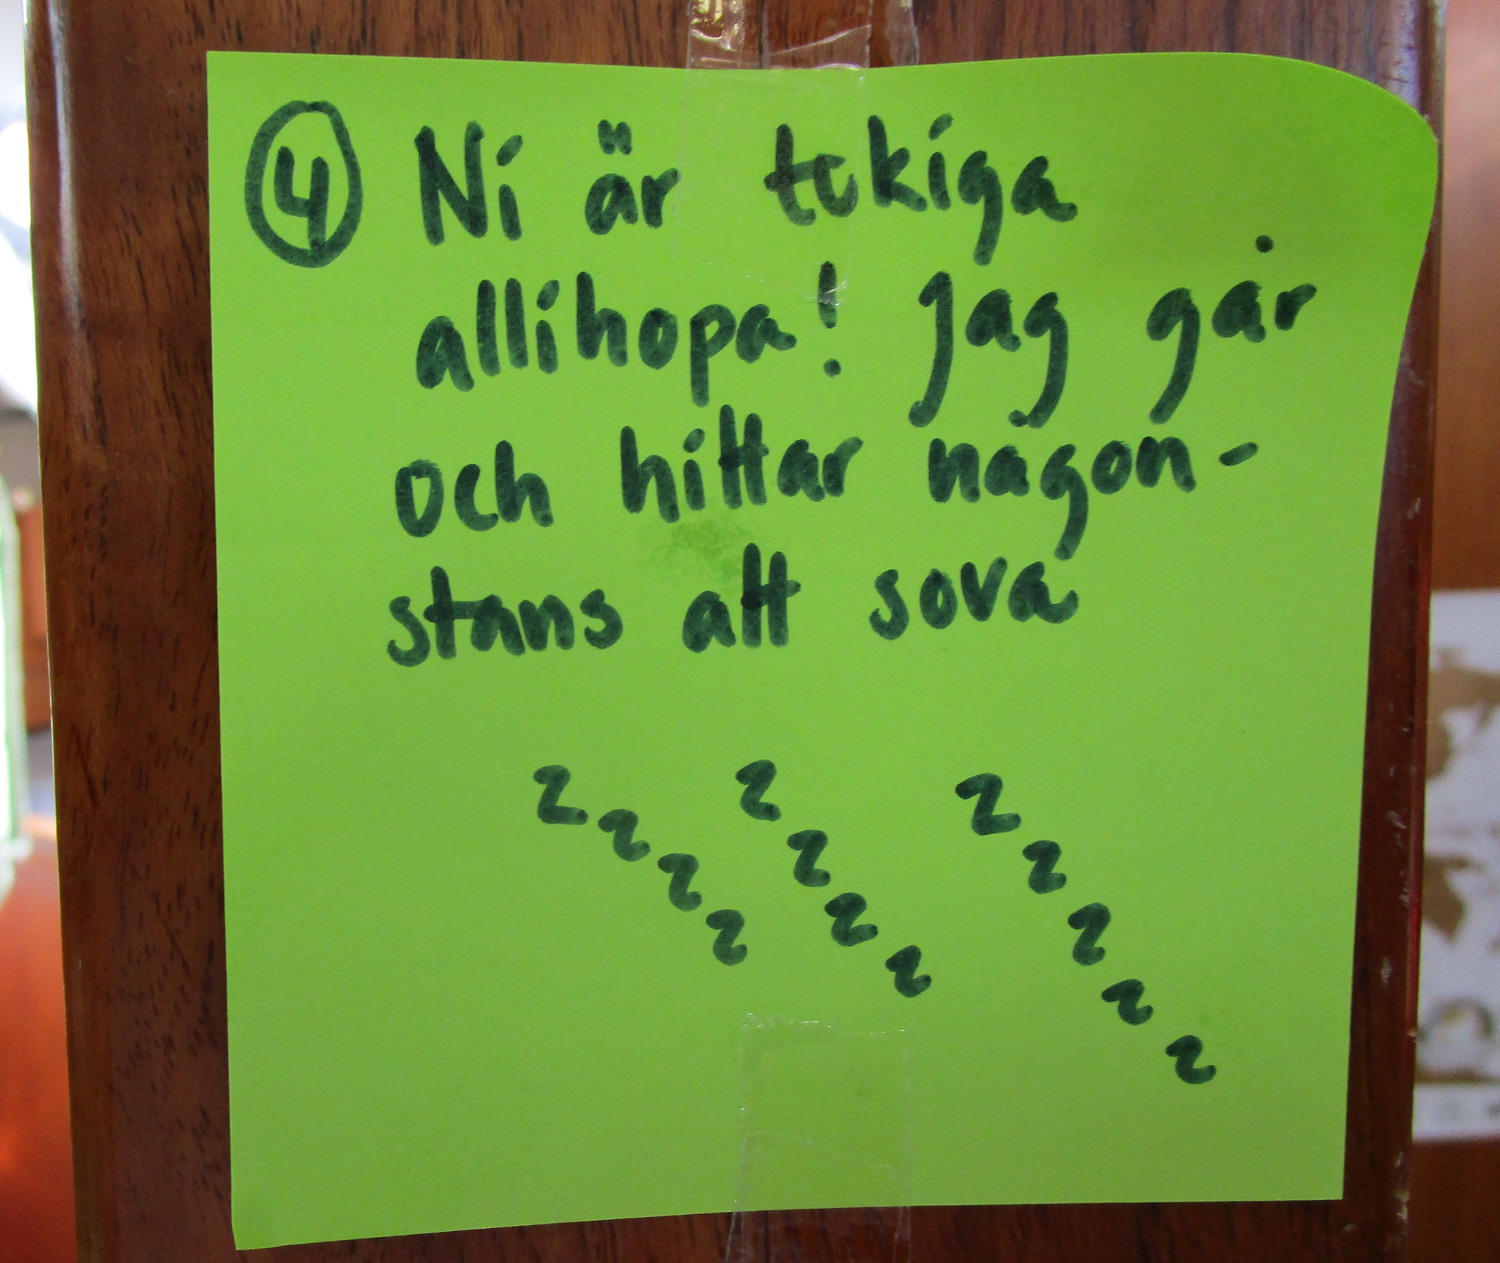 ④ Ni är tokiga
allihopa! Jag går
och hittar någon-
stans att sova
z z z
z z z
z z z
z z z
z